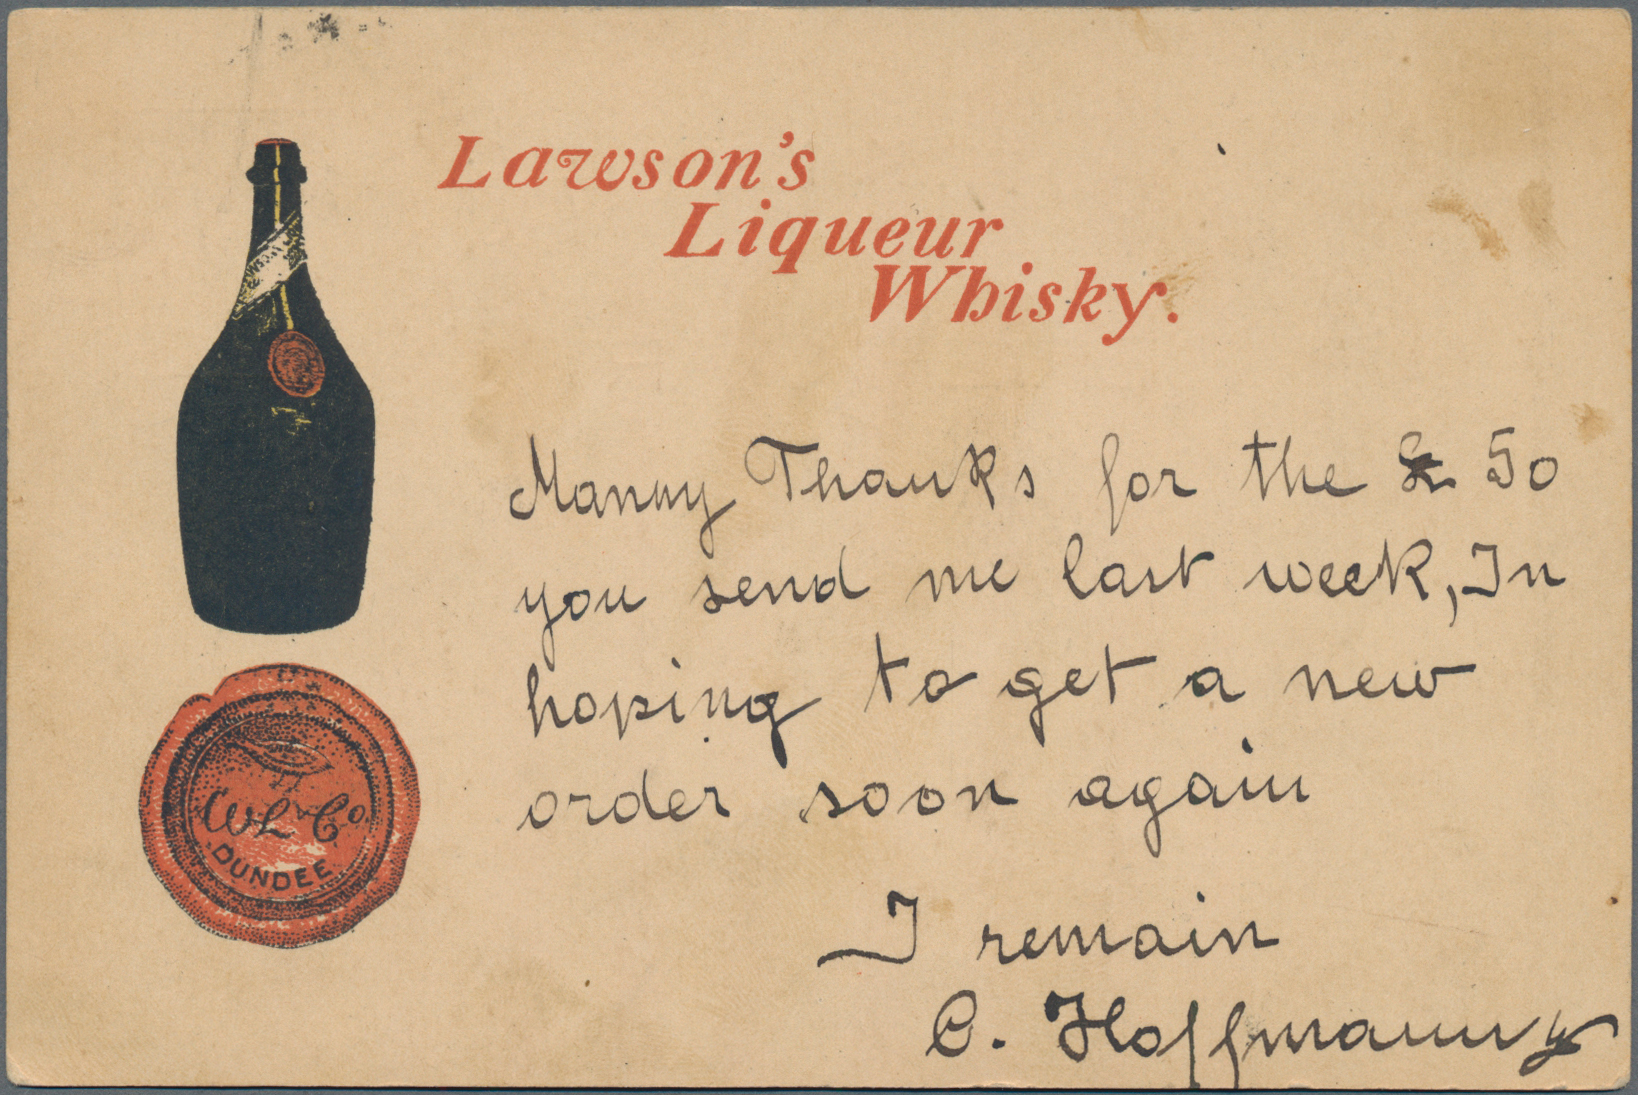 Lawson's
Liqueur
Whisky.
Manny Thanks for the £ 50
you send me last week, In
hoping to get a new
order soon again
I remain
C. Hoffmann
WL & Co
DUNDEE